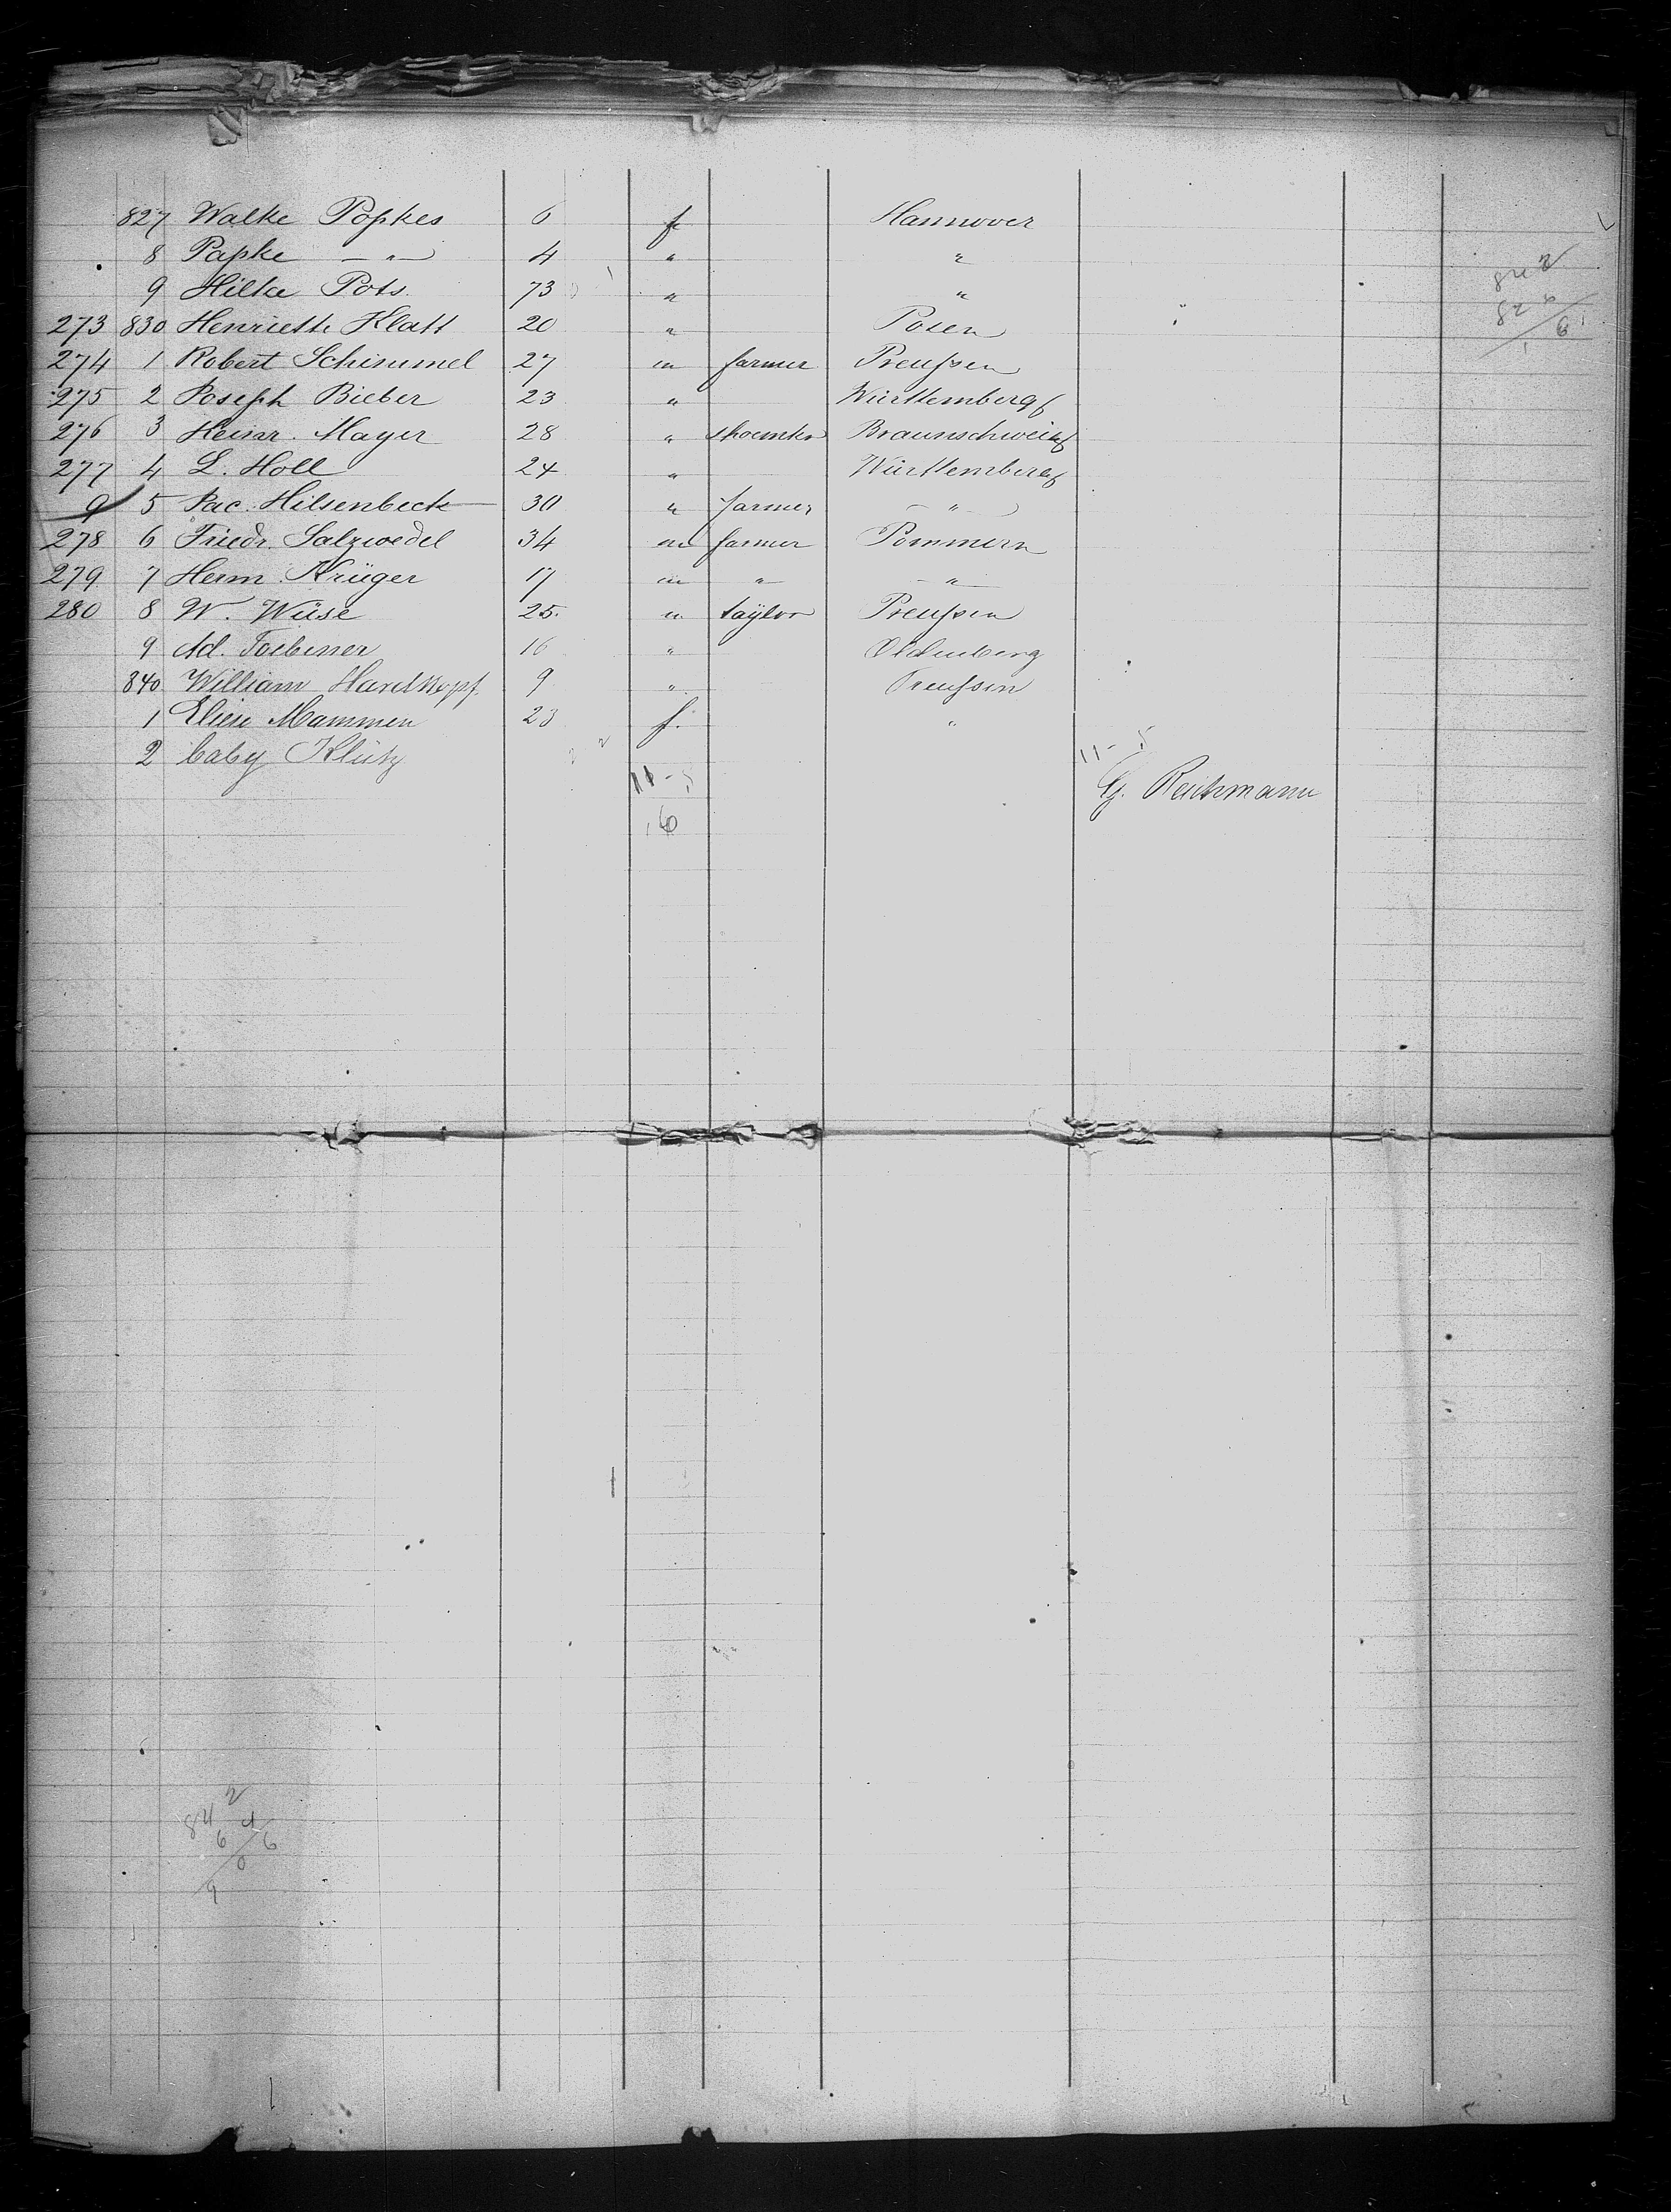 827 Walke Popkes 6 f Hannover
8 Papke — " — 4 " "
9 Hilke Pots. 73 " "
273 830 Henriette Klatt 20 " Posen
274 1 Robert Schimmel 27 m farmer Preußen
275 2 Joseph Bieber 23 " Württemberg
276 3 Heinr. Mayer 28 " shoemkr Braunschweig
277 4 L. Holl 24 " Württemberg
9 5 Jac. Hilsenbeck 30 " farmer — " —
278 6 Friedr. Salzwedel 34 m farmer Pommern
279 7 Herm. Krüger 17 m — " — — " —
280 8 W. Wüse 25. m taylor Preußen
9 Ad. 16 " Oldenberg
840 William Hardkopf. 9 " Preußen
1 Elise Mammen 23 f. "
2 baby Klütz
11 - 5 11 - 5
G. Reichmann
16
842
826
16
842